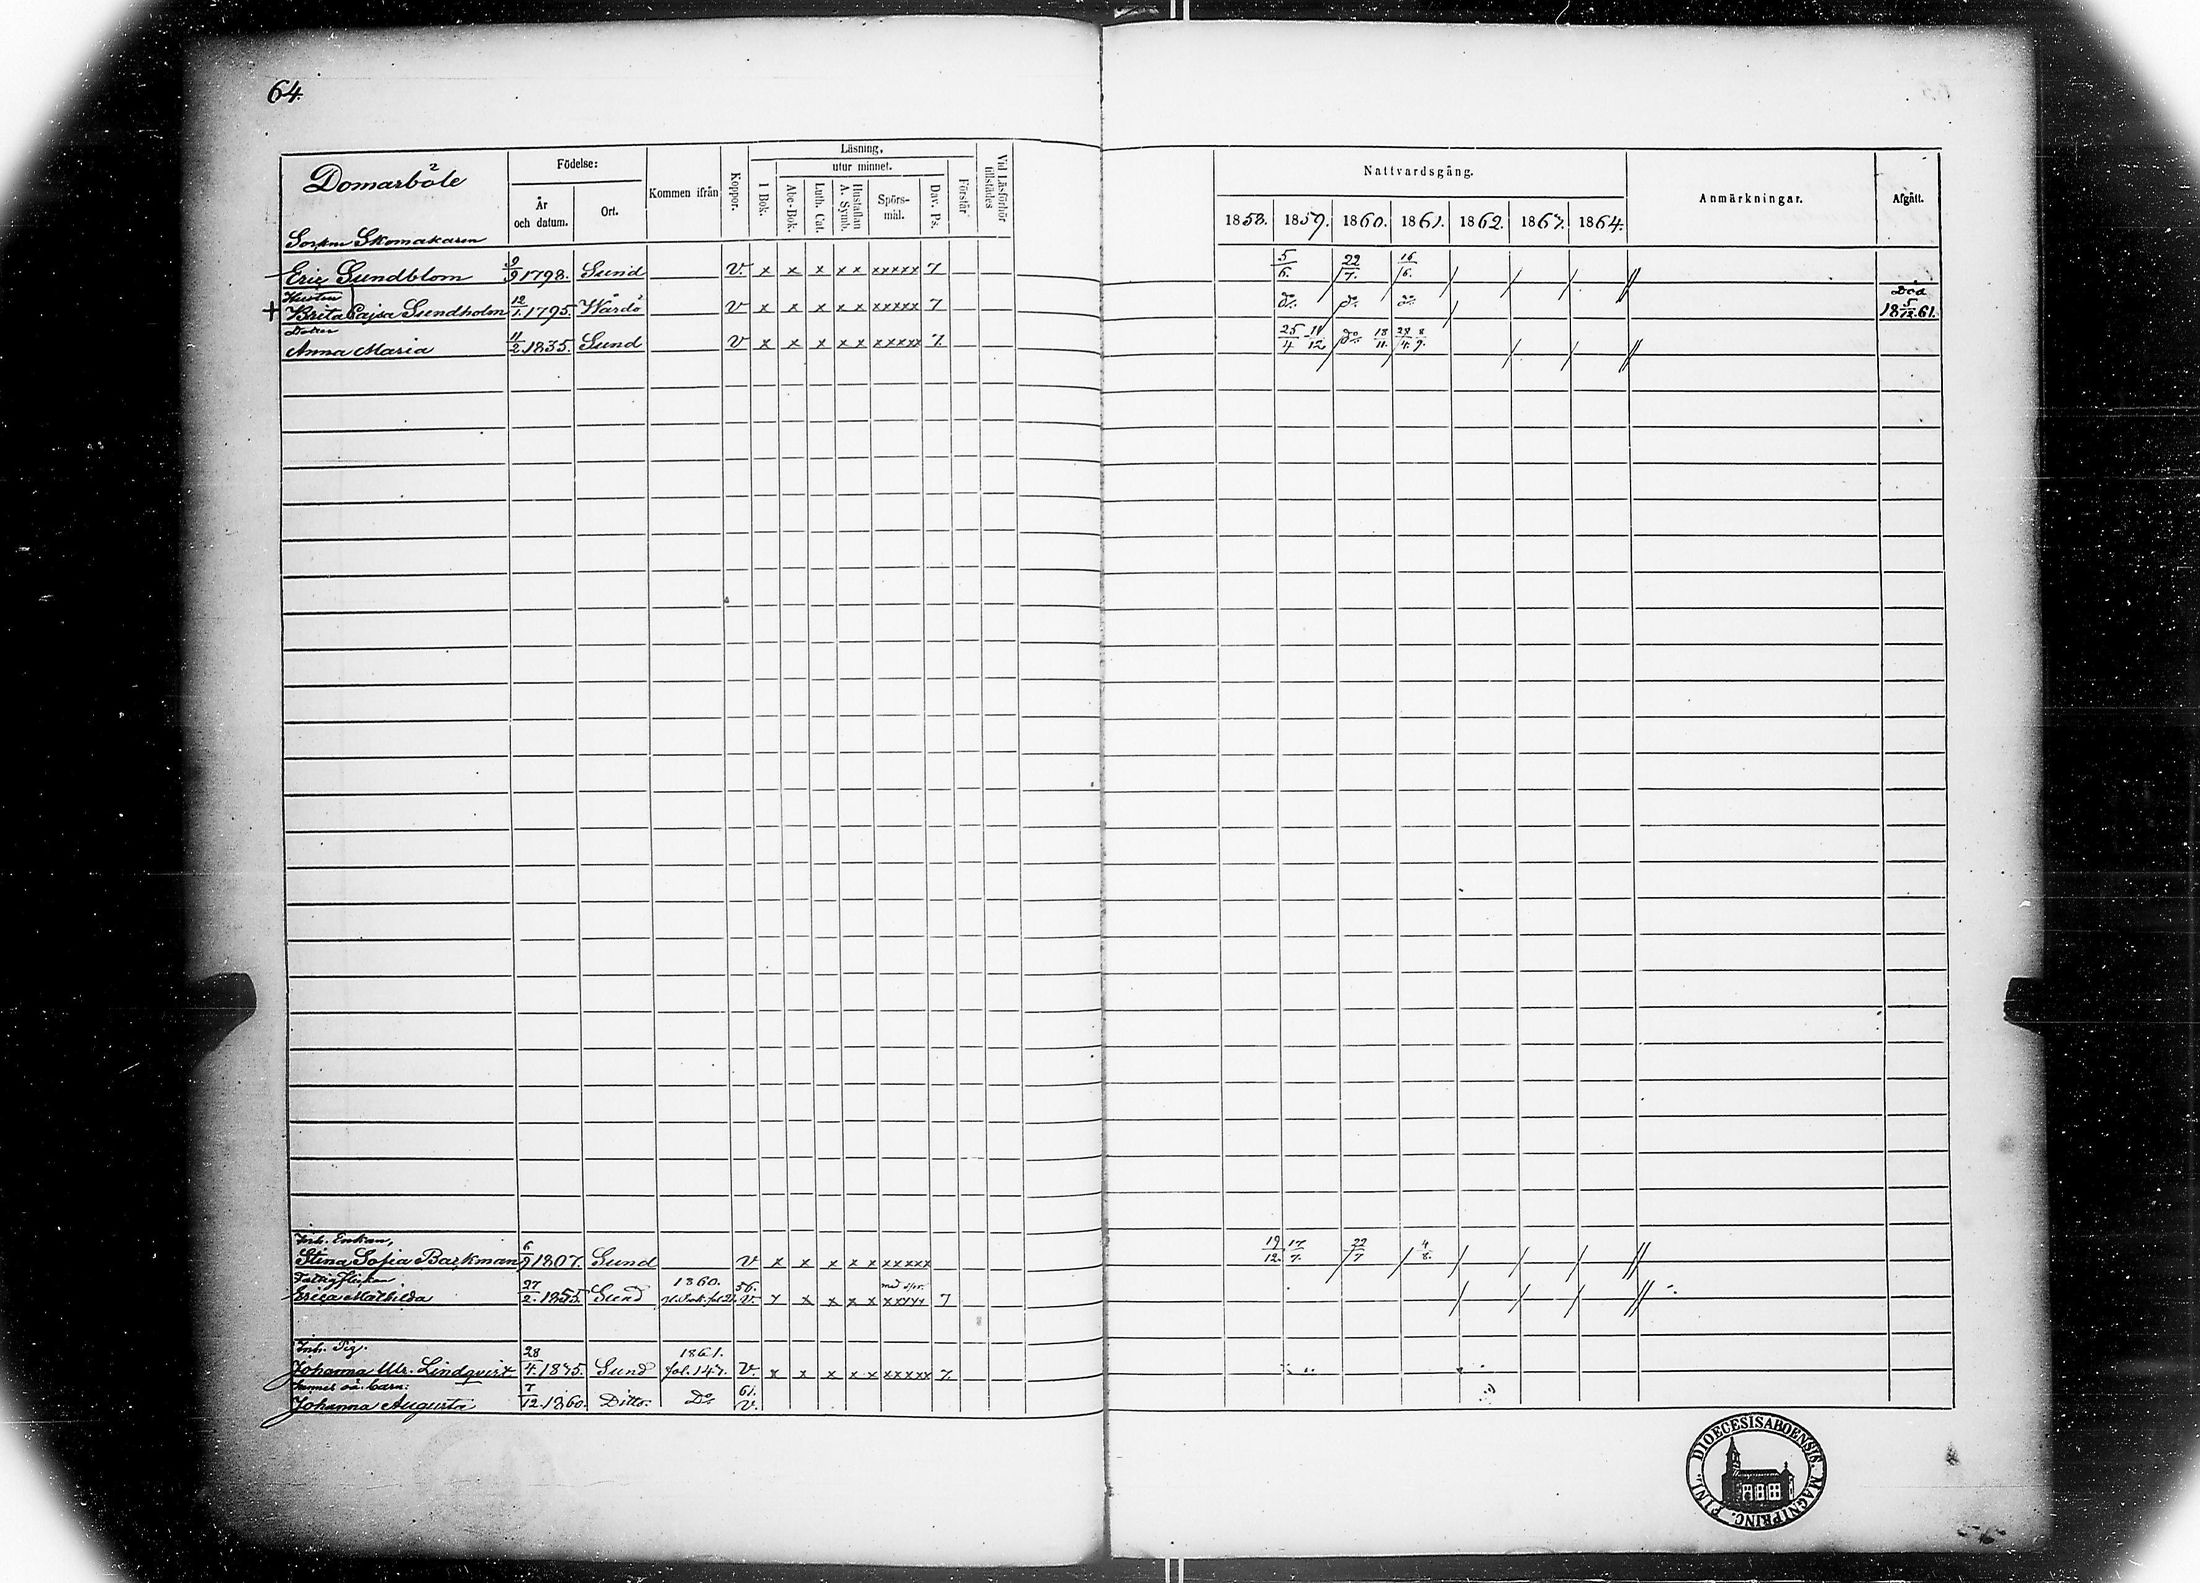 64.
Domarböle
Födelse:
År och datum.
Ort.
Kommen ifrån
Koppor.
Läsning,
utur minnet.
I Bok.
Abc-Bok.
Luth. Cat.
Hustaflan A. Symb.
Spörs-mål.
Dav. Ps.
Förstår
Vid Läsförhör tillstädes
Nattvardsgång.
1858. 1859. 1860. 1861. 1862. 1863. 1864.
Anmärkningar.
Afgått.
Skomakaren
Eric Sundblom 9/9 1798. Sund v. x x x x x xxxxx 7 5/6. 22/7. 16/6.
Hustru
+ Brita Cajsa Sundholm 12/1. 1795. Wårdö v x x x x x xxxxx 7 do. do. do. Död 18 5/12. 61.
Dotter
Anna Maria 11/2. 1835. Sund v x x x x x xxxxx 7. 25/4 11/12 do. 18/11. 28/4. 8/9.
Inh. Enkan,
Stina Sofia Backman 6/9 1807. Sund v x x x x x xxxxx 19/12. 17/7. 22/7 4/8.
Fattigflickan
Erica Mathilda 27/2. 1855. Sund 1860. 56. v. x x x x x xxxxx 7
Inh. Pig.
Johanna Ulr. Lindqvist 28/4. 1835. Sund 1861. fol. 147. v. x x x x x xxxxx 7.
hennes oä. barn:
Johanna Augusta 7/12. 1860. Ditto. Do 61. v.
DIOECESIS ABOENSIS. MAGNI PRINC. FINL.